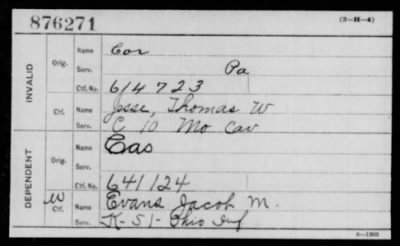 876271 (3-H-4)
INVALID
Orig. Name Cor
Serv. Pa
Ctf. No. 614723
Ctf. Name Jesse, Thomas W
Serv. C 10 Mo Cav
DEPENDENT
Orig. Name Eas
Serv.
Ctf. No. 641124
W Ctf. Name Evans Jacob M.
Serv. K-51-Ohio Inf